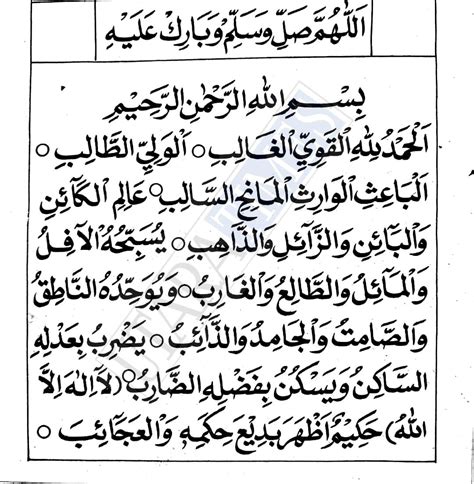 اَللّٰهُمَّ صَلِّ وَسَلِّمْ وَبَارِكْ عَلَيْهِ
بِسْمِ اللهِ الرَّحْمٰنِ الرَّحِيْمِ
اَلْحَمْدُ لِلّٰهِ الْقَوِيِّ الْغَالِبِ ○ اَلْوَلِيِّ الطَّالِبِ ○
الْبَاعِثِ الْوَارِثِ الْمَانِحِ السَّالِبِ ○ عَالِمِ الْكَائِنِ
وَالْبَائِنِ وَالزَّائِلِ وَالذَّاهِبِ ○ يُسَبِّحُهُ الْاٰفِلُ
وَالْمَائِلُ وَالطَّالِعُ وَالْغَارِبُ ○ وَيُوَحِّدُهُ النَّاطِقُ
وَالصَّامِتُ وَالْجَامِدُ وَالذَّائِبُ ○ يَضْرِبُ بِعَدْلِهِ
السَّاكِنُ وَيَسْكُنُ بِفَضْلِهِ الضَّارِبُ ○ (لَا اِلٰهَ اِلَّا
اللهُ) حَكِيْمٌ اَظْهَرَ بَدِيْعَ حِكَمِهِ وَالْعَجَائِبَ ○